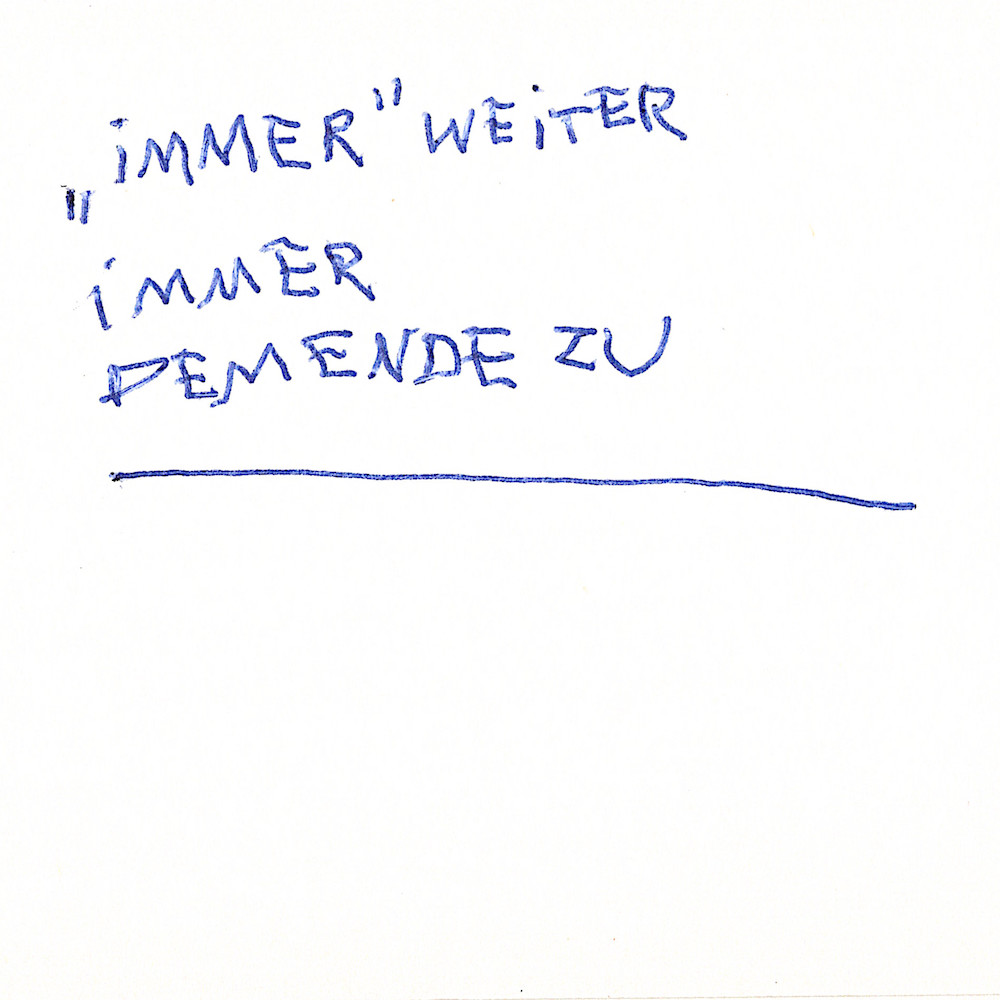 „iMMER" WEiTER
iMMER
DEM ENDE ZU